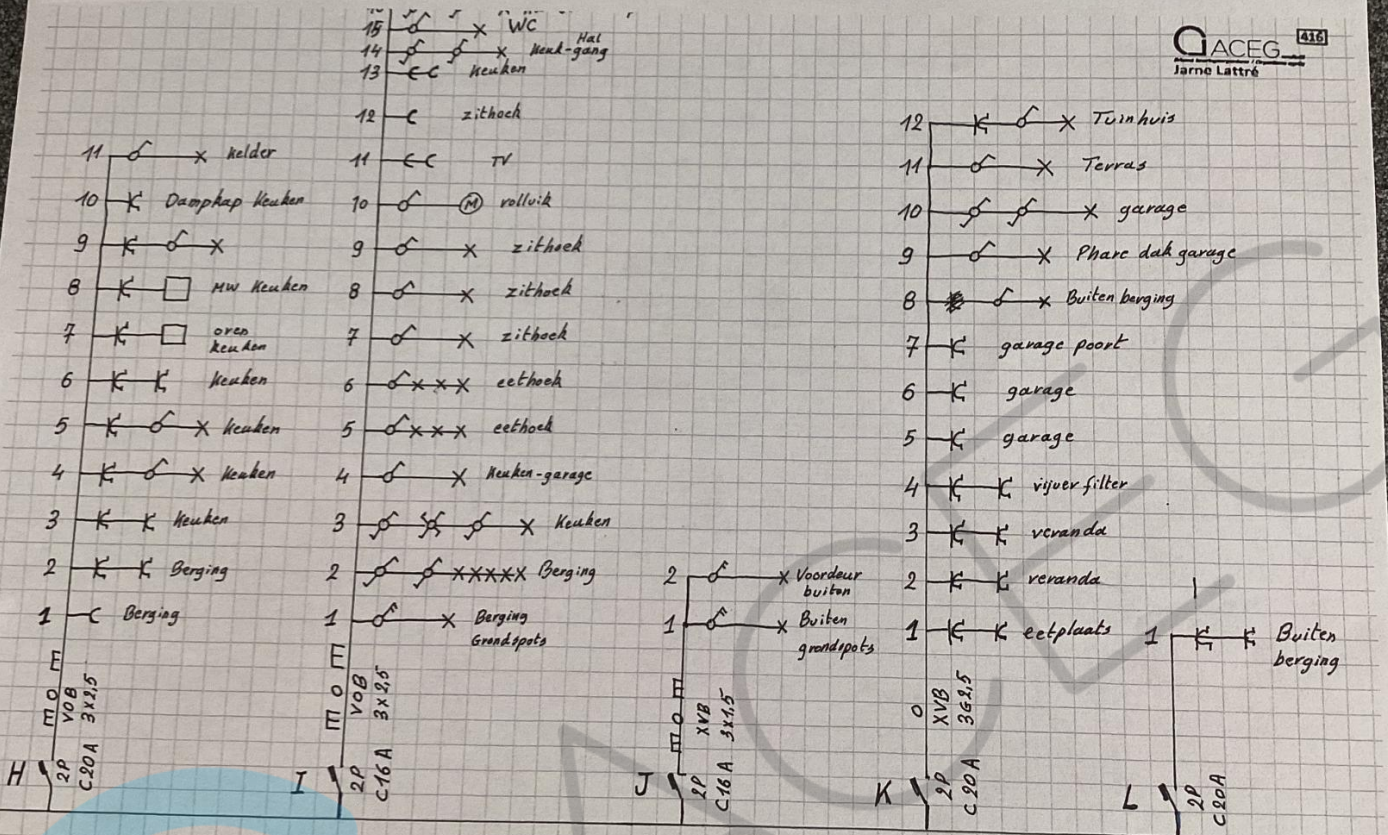 ACEG 416
Jarne Lattré
11 kelder
10 Dampkap keuken
9
8 MW keuken
7 oven
keuken
6 keuken
5 keuken
4 keuken
3 keuken
2 Berging
1 Berging
VOB
3x2,5
H 2P
C20A
15 WC
14 keuk-gang
Hal
13 keuken
12 zithoek
11 TV
10 M rolluik
9 zithoek
8 zithoek
7 zithoek
6 eethoek
5 eethoek
4 keuken-garage
3 keuken
2 Berging
1 Berging
Grondspots
VOB
3x2,5
I 2P
C16A
2 Voordeur
buiten
1 Buiten
grondspots
XVB
3x1,5
J 2P
C16A
12 Tuinhuis
11 Terras
10 garage
9 Phare dak garage
8 Buiten berging
7 garage poort
6 garage
5 garage
4 vijver filter
3 veranda
2 veranda
1 eetplaats
XVB
3G2,5
K 2P
C20A
1 Buiten
berging
L 2P
C20A